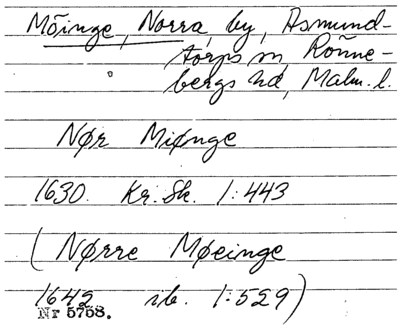 Möinge, Norra, by, Asmund-
torps sn, Rönne-
bergs hd, Malm. l.
Nør Miønge
1630. Kr. Sk. 1:443
(Nørre Møeinge
1642 ib. 1:529)
Nr 5758.